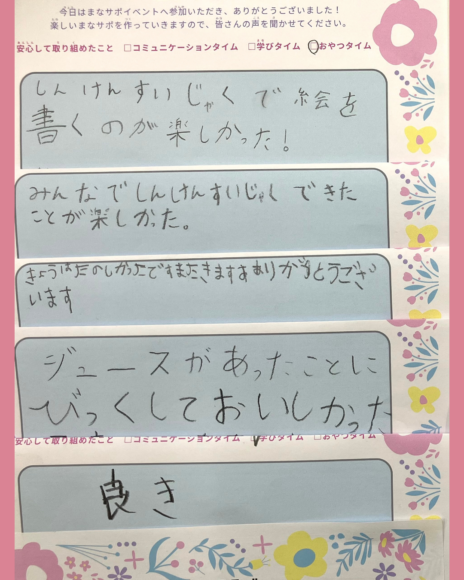 今日はまなサポイベントへ参加いただき、ありがとうございました！
楽しいまなサポを作っていきますので、皆さんの声を聞かせてください。
安心して取り組めたこと □コミュニケーションタイム □学びタイム □おやつタイム
しんけんすいじゃくで絵を
書くのが楽しかった！
みんなでしんけんすいじゃくできた
ことが楽しかった。
きょうはたのしかったですまたきますありがとうござ
います
ジュースがあったことに
びっくしておいしかった
安心して取り組めたこと □コミュニケーションタイム □学びタイム □おやつタイム
良き